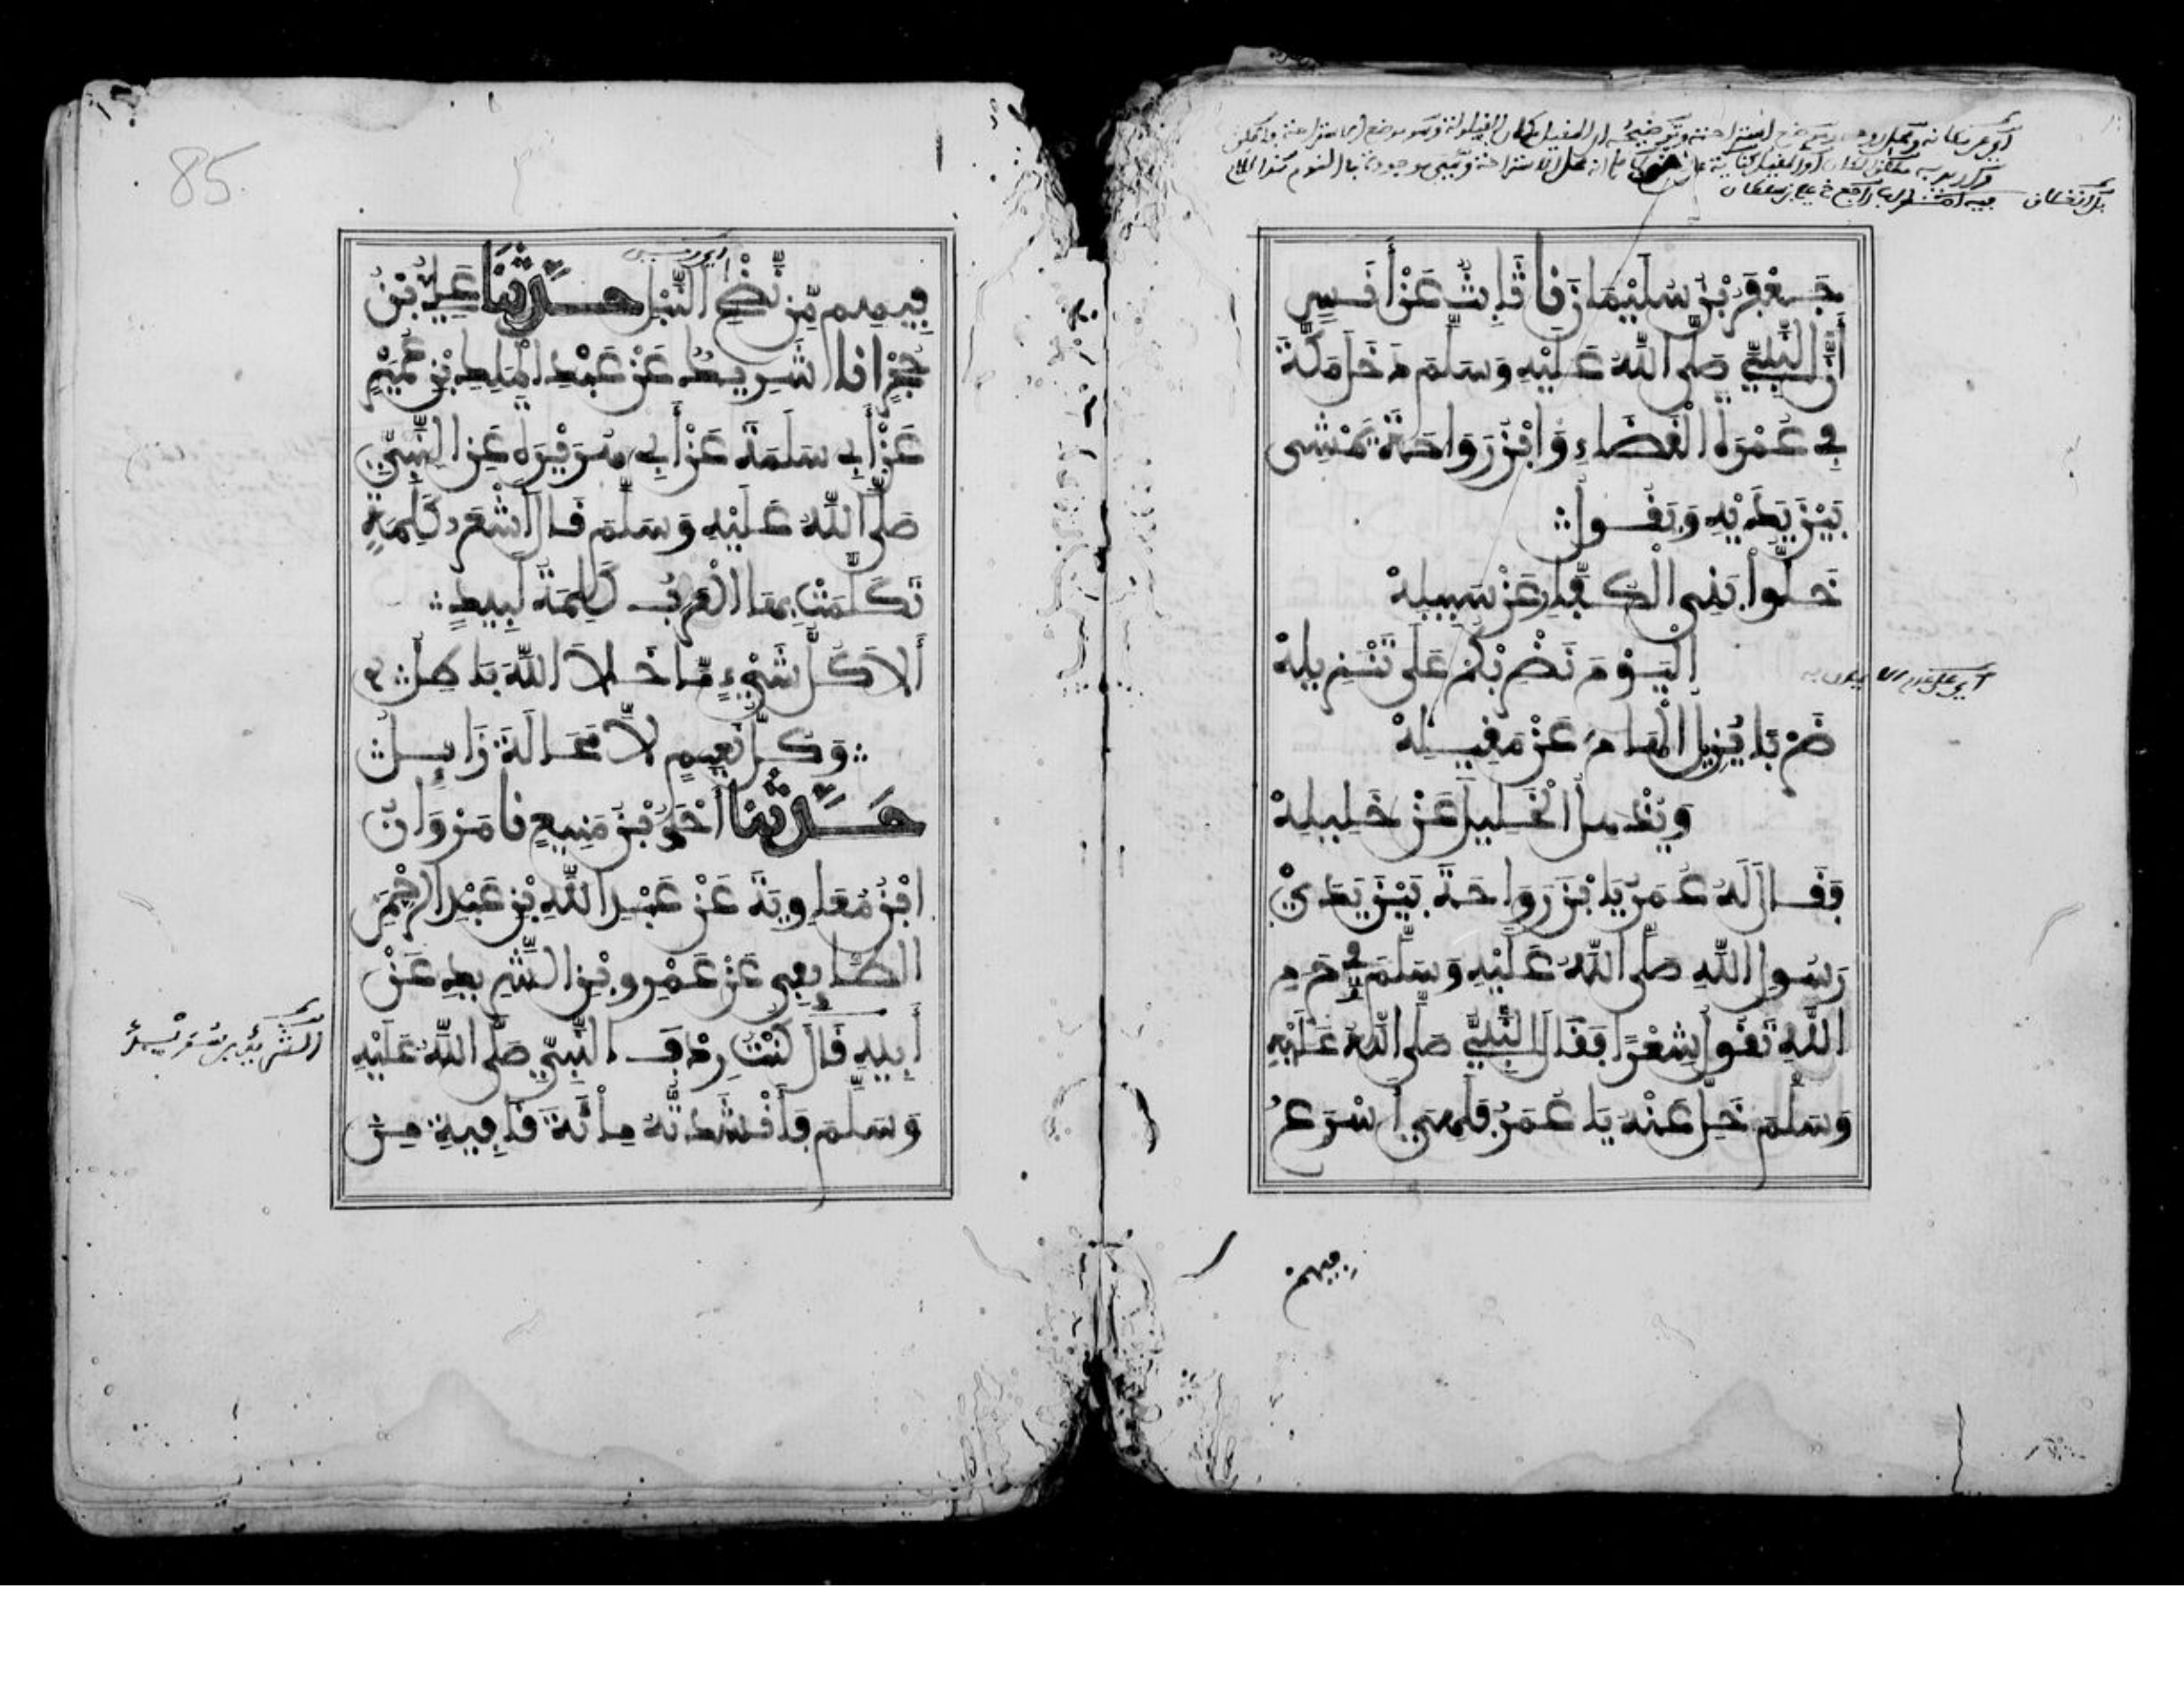 جَعْفَرُ بْنُ سُلَيْمَانَ نَا ثَابِتٌ عَنْ أَنَسٍ
أَنَّ النَّبِيَّ صَلَّى اللَّهُ عَلَيْهِ وَسَلَّمَ دَخَلَ مَكَّةَ
فِي عُمْرَةِ الْقَضَاءِ وَابْنُ رَوَاحَةَ يَمْشِي
بَيْنَ يَدَيْهِ وَيَقُولُ
خَلُّوا بَنِي الْكُفَّارِ عَنْ سَبِيلِهْ
الْيَوْمَ نَضْرِبْكُمْ عَلَى تَنْزِيلِهْ
ضَرْبًا يُزِيلُ الْهَامَ عَنْ مَقِيلِهْ
وَيُذْهِلُ الْخَلِيلَ عَنْ خَلِيلِهْ
فَقَالَ لَهُ عُمَرُ يَا بْنَ رَوَاحَةَ بَيْنَ يَدَيْ
رَسُولِ اللَّهِ صَلَّى اللَّهُ عَلَيْهِ وَسَلَّمَ وَفِي حَرَمِ
اللَّهِ تَقُولُ شِعْرًا فَقَالَ النَّبِيُّ صَلَّى اللَّهُ عَلَيْهِ
وَسَلَّمَ خَلِّ عَنْهُ يَا عُمَرُ فَلَهِيَ أَسْرَعُ
فيهم
85
فِيهِمْ مِنْ نَضْحِ النَّبْلِ حَدَّثَنَا عَلِيُّ بْنُ
حُجْرٍ انا شَرِيكٌ عَنْ عَبْدِ الْمَلِكِ بْنِ عُمَيْرٍ
عَنْ أَبِي سَلَمَةَ عَنْ أَبِي هُرَيْرَةَ عَنِ النَّبِيِّ
صَلَّى اللَّهُ عَلَيْهِ وَسَلَّمَ قَالَ أَشْعَرُ كَلِمَةٍ
تَكَلَّمَتْ بِهَا الْعَرَبُ كَلِمَةُ لَبِيدٍ
أَلَا كُلُّ شَيْءٍ مَّا خَلَا اللَّهَ بَاطِلٌ
وَكُلُّ نَعِيمٍ لَا مَحَالَةَ زَايِلٌ
حَدَّثَنَا أَحْمَدُ بْنُ مَنِيعٍ نا مَرْوَانُ
ابْنُ مُعَاوِيَةَ عَنْ عَبْدِ اللَّهِ بْنِ عَبْدِ الرَّحْمَنِ
الطَّايِفِيِّ عَنْ عَمْرِو بْنِ الشَّرِيدِ عَنْ
أَبِيهِ قَالَ كُنْتُ رِدْفَ النَّبِيِّ صَلَّى اللَّهُ عَلَيْهِ
وَسَلَّمَ فَأَنْشَدْتُهُ مِائَةَ قَافِيَةٍ مِنْ
الشريد بن سويد